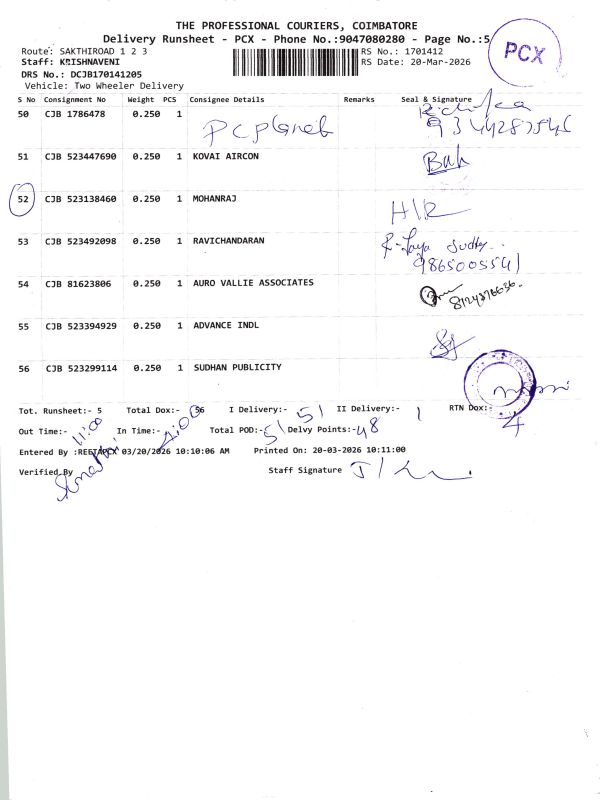 THE PROFESSIONAL COURIERS, COIMBATORE
Delivery Runsheet - PCX - Phone No.:9047080280 - Page No.:5
PCX
Route: SAKTHIROAD 1 2 3 RS No.: 1701412
Staff: KRISHNAVENI RS Date: 20-Mar-2026
DRS No.: DCJB170141205
Vehicle: Two Wheeler Delivery
S No Consignment No Weight PCS Consignee Details Remarks Seal & Signature
50 CJB 1786478 0.250 1 PC Planet
51 CJB 523447690 0.250 1 KOVAI AIRCON
52 CJB 523138460 0.250 1 MOHANRAJ H/R
53 CJB 523492098 0.250 1 RAVICHANDARAN
9865005541
54 CJB 81623806 0.250 1 AURO VALLIE ASSOCIATES
55 CJB 523394929 0.250 1 ADVANCE INDL
56 CJB 523299114 0.250 1 SUDHAN PUBLICITY
Tot. Runsheet:- 5 Total Dox:- 56 I Delivery:- 51 II Delivery:- 1 RTN Dox:- 4
Out Time:- 11:00 In Time:- Total POD:- 51 Delvy Points:- 48
Entered By :REETAPCX 03/20/2026 10:10:06 AM Printed On: 20-03-2026 10:11:00
Verified By Staff Signature